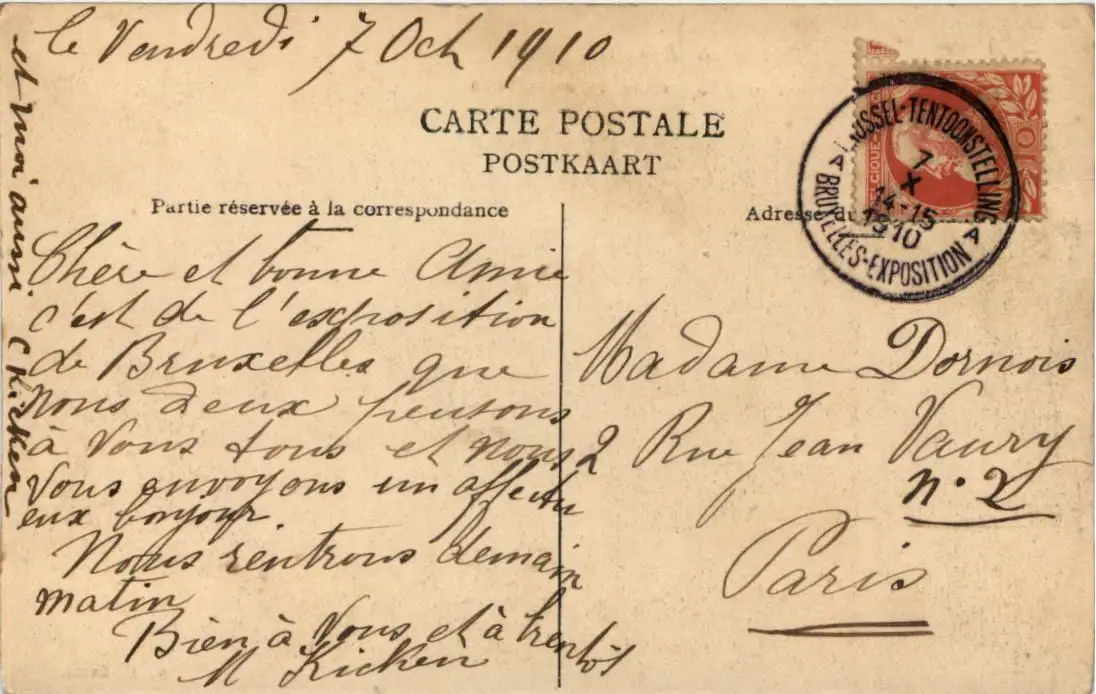 le Vendredi 7 Oct 1910
CARTE POSTALE
POSTKAART
Partie réservée à la correspondance
Adresse du
BRUSSEL-TENTOONSTELLING
7
X
14-15
1910
BRUXELLES-EXPOSITION
Chère et bonne Amie
c'est de l'exposition
de Bruxelles que
nous deux pensons
à vous tous et nous
vous envoyons un affectu
eux bonjour
Nous rentrons demain
matin
Bien à Vous et à bientôt
M Kicken
et moi aussi C Kicken
Madame Dornois
2 Rue Jean Vaury
n. 2
Paris